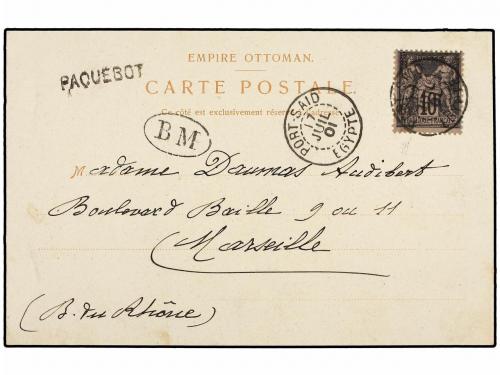 EMPIRE OTTOMAN.
PAQUEBOT
CARTE POSTALE.
Ce côté est exclusivement réservé
PORT-SAID
JUIL
01
EGYPTE
10
BM
Madame Daumas Audibert
Boulevard Baille 9 ou 11
Marseille
(B. du Rhône)